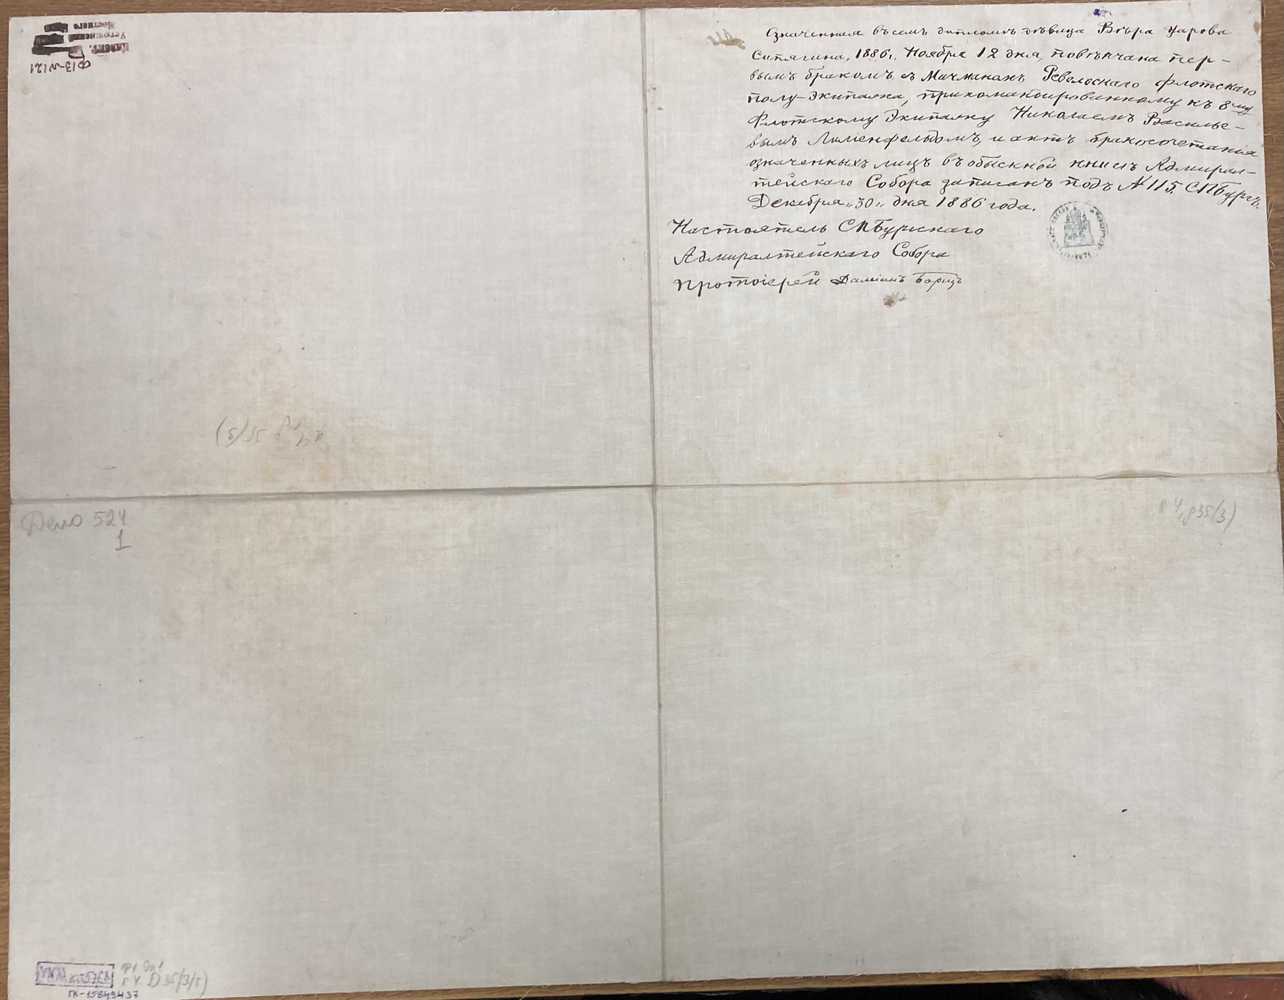 Означенная въ семъ дипломѣ дѣвица Вѣра Карова
Сипягина, 1886 г. Ноября 12 дня повѣнчана пер-
вымъ бракомъ съ Мичманомъ Ревельскаго флотскаго
полу-экипажа, прикомандированному къ 8му
Флотскому Экипажу Николаемъ Василье-
вымъ Лилиенфельдомъ, и актъ бракосочетанія
означенныхъ лицъ въ обыскной книгѣ Адмирал-
тейскаго Собора записанъ подъ № 115. СПБургъ.
Декабря „30„ дня 1886 года.
Настоятель СПБургскаго
Адмиралтейскаго Собора
Протоіерей Даміанъ Борщъ
ф13-№121
Дело 524
1
ГК-15849437